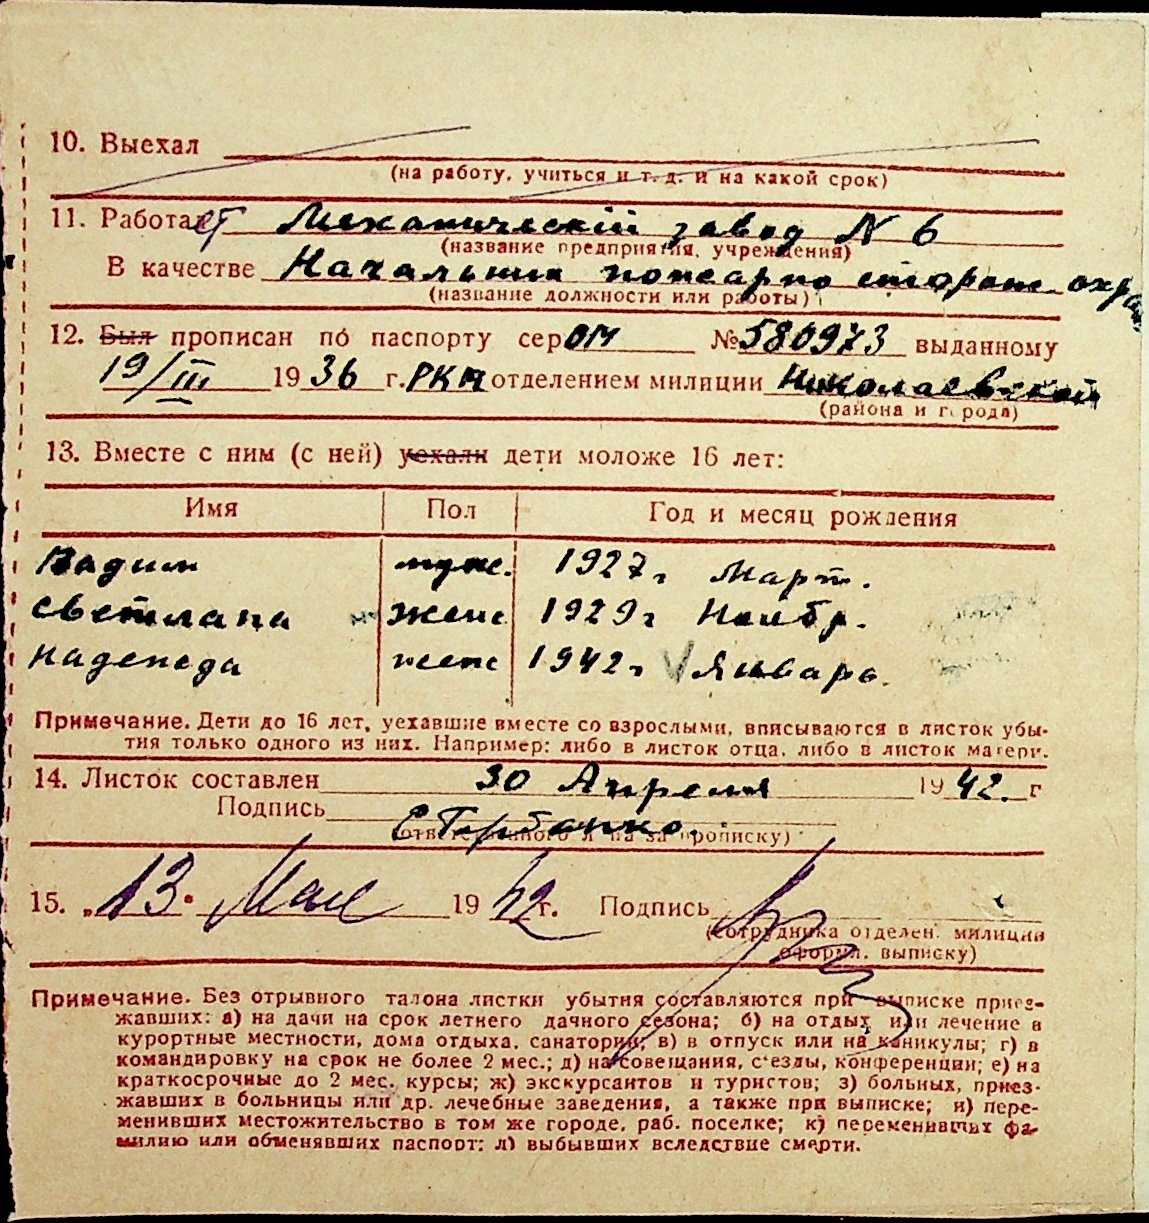 10. Выехал
(на работу, учиться и т. д. и на какой срок)
11. Работает Механический завод N 6
(название предприятия, учреждения)
В качестве Начальник пожарно сторож. охра
(название должности или работы)
12. Был прописан по паспорту сер ОМ № 580973 выданному
19/III 1936 г. РКМ отделением милиции Николаевской
(района и города)
13. Вместе с ним (с ней) уехали дети моложе 16 лет:
Имя Пол Год и месяц рождения
Вадим муж. 1927г Март.
Светлана женс 1929г Ноябр.
Надежда женс 1942г V Январь.
Примечание. Дети до 16 лет, уехавшие вместе со взрослыми, вписываются в листок убы-
тия только одного из них. Например: либо в листок отца, либо в листок матери.
14. Листок составлен 30 Апреля 1942. г
Подпись
(ответственного л-ца за прописку)
15. „13" Мая 1942 г. Подпись
(сотрудника отделен. милиции
оформ. выписку)
Примечание. Без отрывного талона листки убытия составляются при выписке приез-
жавших: а) на дачи на срок летнего дачного сезона; б) на отдых или лечение в
курортные местности, дома отдыха, санатории; в) в отпуск или на каникулы; г) в
командировку на срок не более 2 мес.; д) на совещания, с'езды, конференции; е) на
краткосрочные до 2 мес. курсы; ж) экскурсантов и туристов; з) больных, приез-
жавших в больницы или др. лечебные заведения, а также при выписке; и) пере-
менивших местожительство в том же городе, раб. поселке; к) переменивших фа-
милию или обменявших паспорт; л) выбывших вследствие смерти.